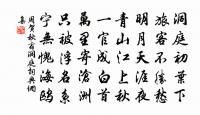 洞庭初葉下
旅客不勝愁
明月天涯夜
青山江上秋
一官成白首
萬里寄滄洲
只被浮名系
寧無愧海鷗
周賀秋宿洞庭詞典網
集